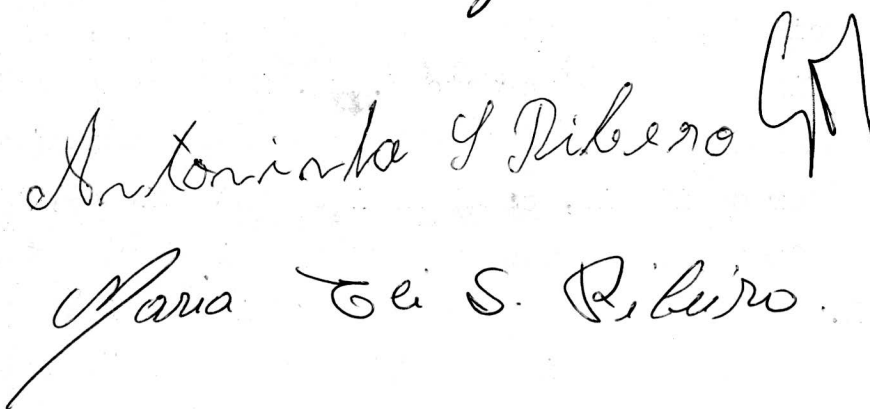 Antoninha S Ribero
Maria S. Ribeiro.